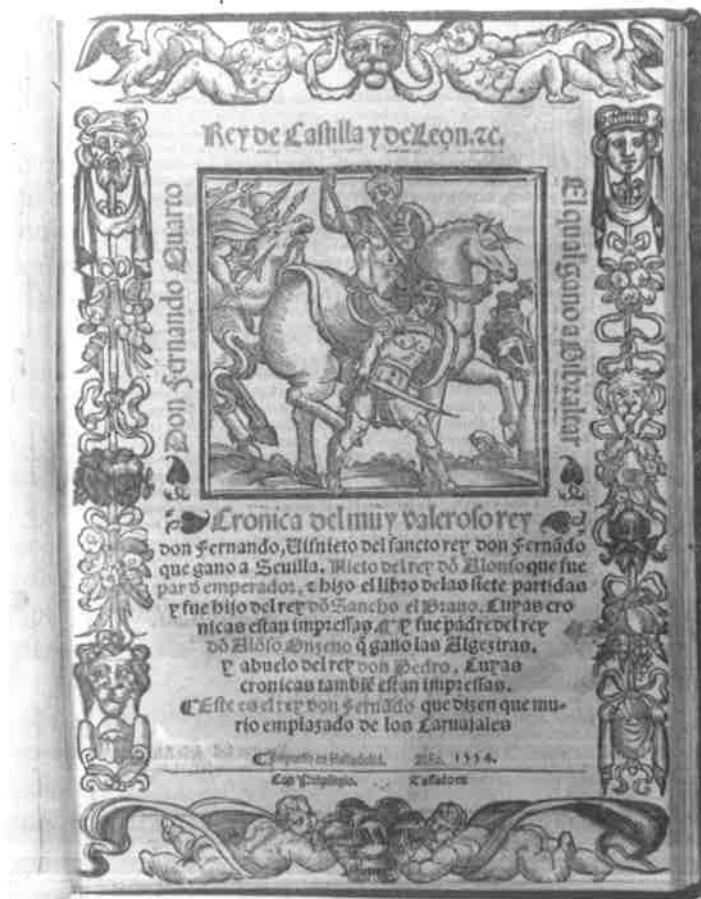 Rey de Castilla y de Leon. ⁊c.
Don Fernando Quarto
El qual gano a Gibraltar
Cronica del muy valeroso rey
don Fernando, Uisnieto del sancto rey don Fernãdo
que gano a Seuilla. Nieto del rey dõ Alonso que fue
par d̓ emperador, ⁊ hizo el libro delas siete partidas
y fue hijo del rey dõ Sancho el Brauo. Cuyas cro
nicas estan impressas. Y fue padre del rey
dõ Alõso Onzeno q̃ gano las Algeziras.
Y abuelo del rey don Pedro. Cuyas
cronicas tambiẽ estan impressas.
¶ Este es el rey don Fernãdo que dizen que mu-
rio emplazado de los Caruajales
¶ Impresso en Valladolid. Año. 1554.
Con Priuilegio.